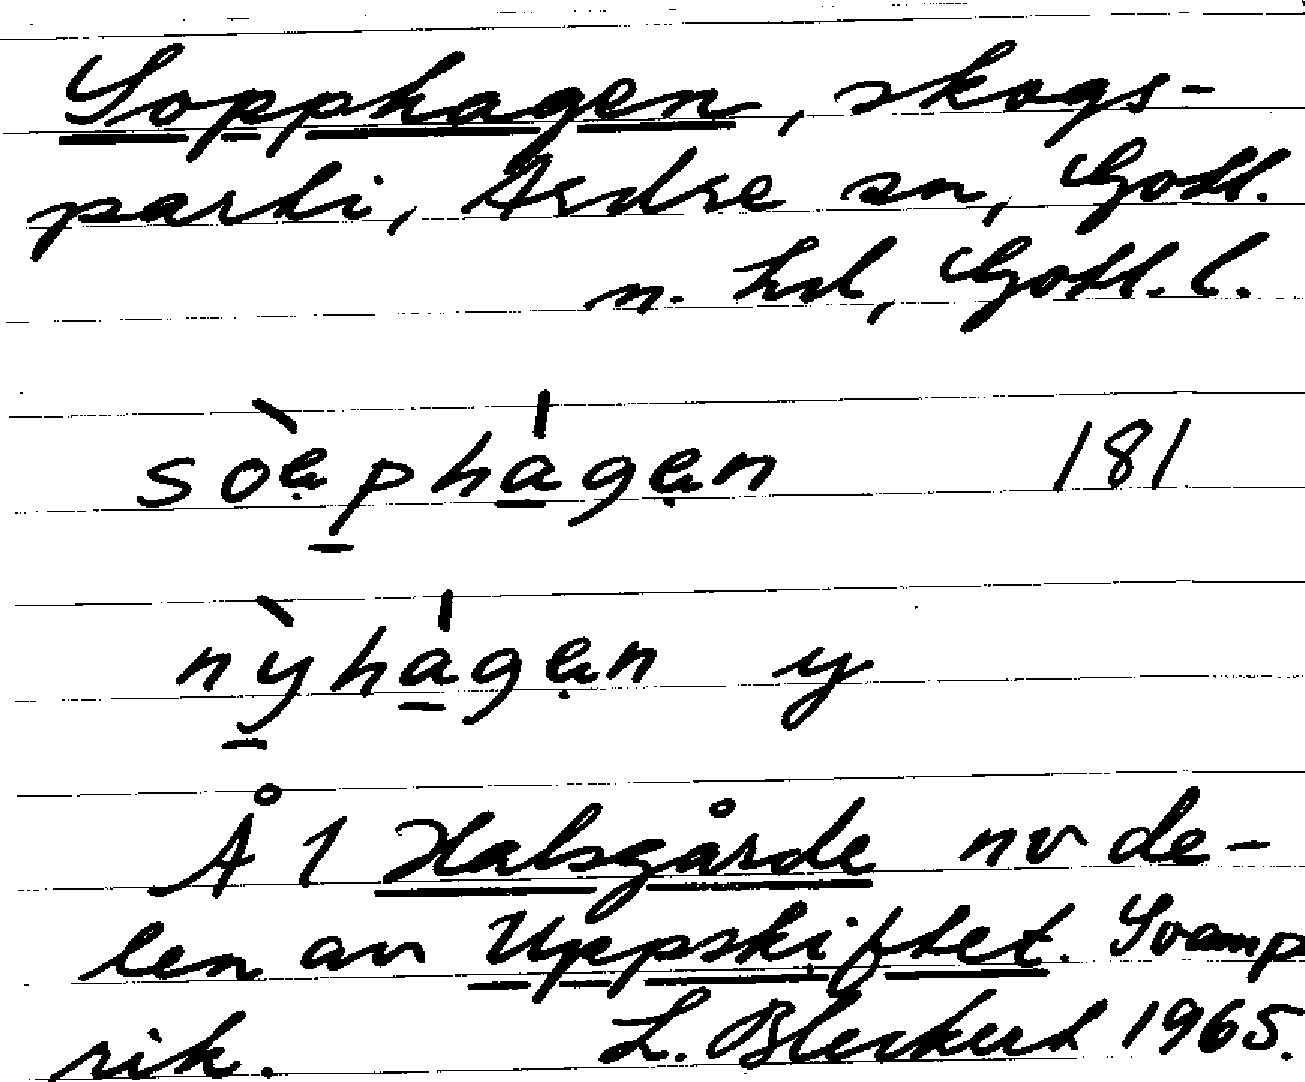 Sopphagen, skogs-
parti, Ardre sn, Gotl.
n. hd, Gotl. l.
sòephágen 181
nỳhágen y
Å 1 Halsgårde nv de-
len av Uppskiftet. Svamp
rik. L. Bleckert 1965.